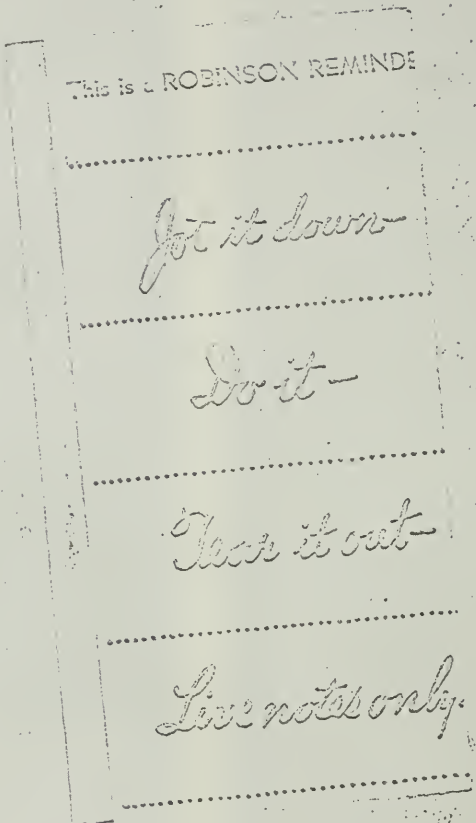 This is a ROBINSON REMINDE
Jot it down—
Do it—
Tear it out—
Live notes only.